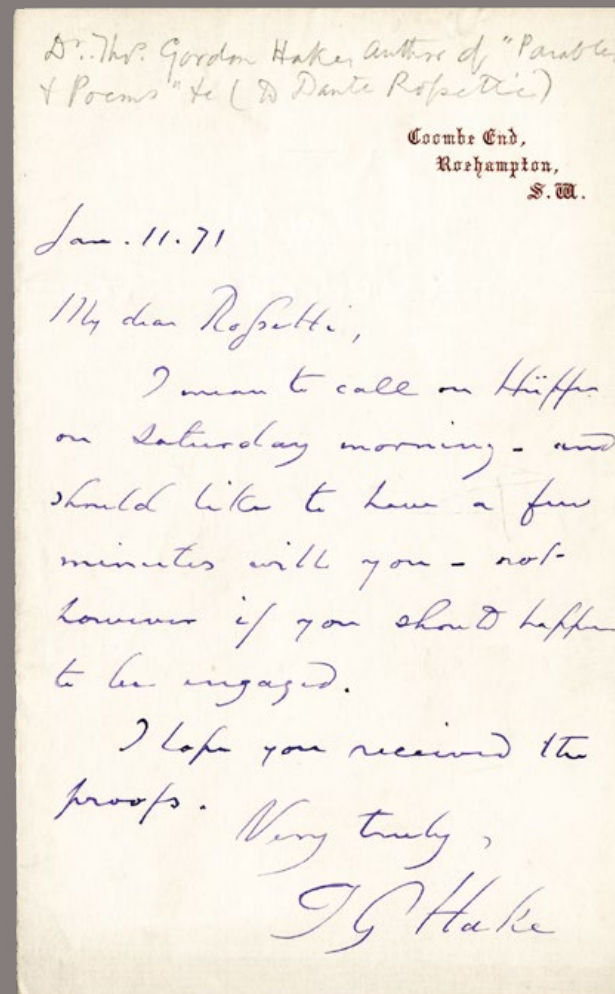 Dr. Thos. Gordon Hake, Author of "Parables
& Poems" &c (To Dante Rossetti)
Coombe End,
Roehampton,
S.W.
Jan. 11. 71
My dear Rossetti,
I mean to call on Hüffer
on Saturday morning - and
should like to have a few
minutes with you - not
however if you should happen
to be engaged.
I hope you received the
proofs.
Very truly,
T G Hake